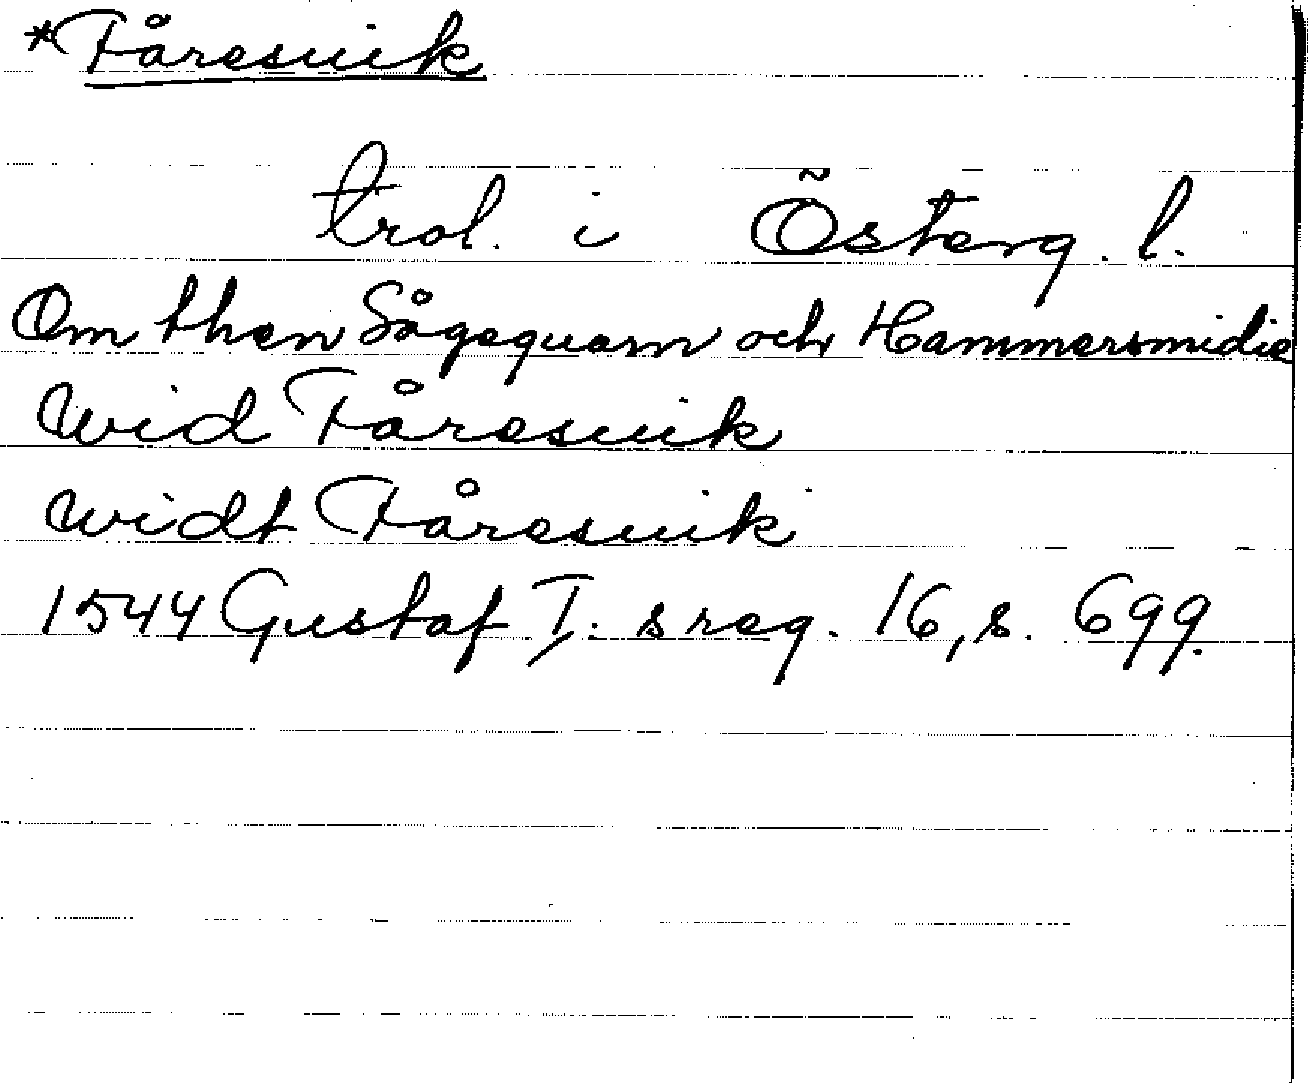 *Fåresuik
trol. i Österg. l.
Om then Sågequarn och Hammersmidie
wid Fåresuik
widt Fåresuik
1544 Gustaf I:s reg. 16, s. 699.